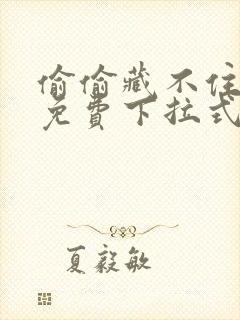 偷偷藏不住
免费下拉式
夏毅敏